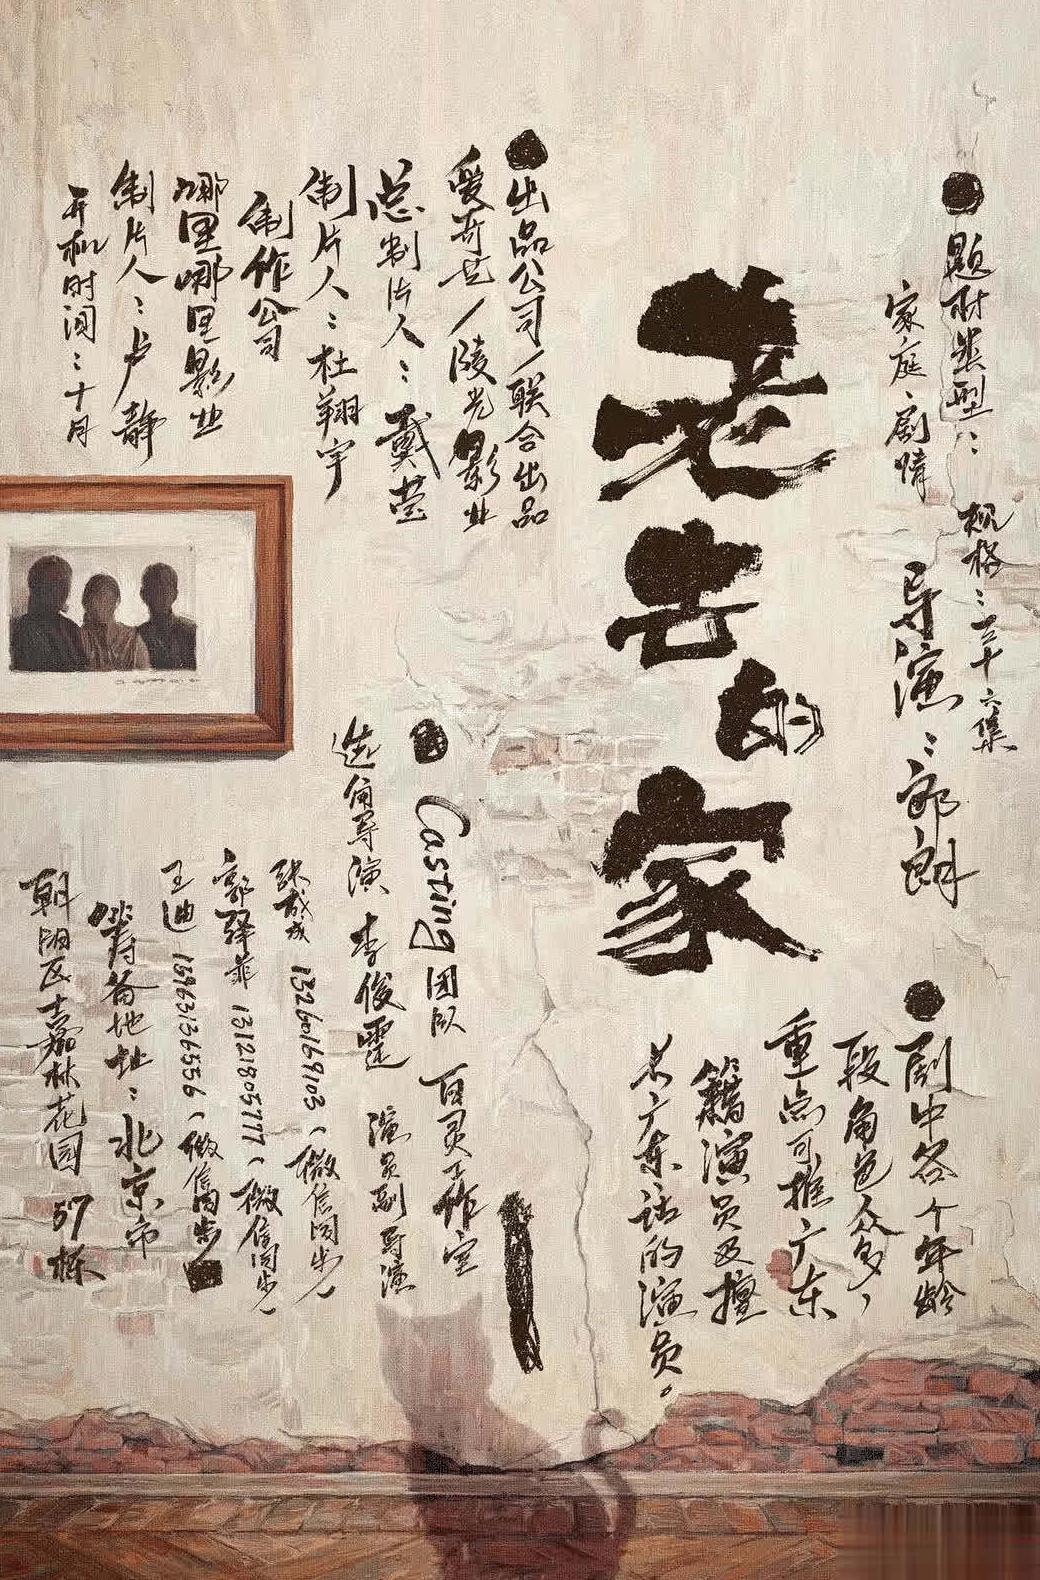 老去的家
●题材类型：
家庭、剧情
规格：三十六集
导演：郭朗
●剧中各个年龄
段角色众多，
重点可推广东
籍演员及擅
长广东话的演员。
●出品公司／联合出品
爱奇艺／陵光影业
总制片人：戴莹
制片人：杜翔宇
制作公司
哪里哪里影业
制片人：卢静
开机时间：十月
●Casting团队 百灵工作室
选角导演 李俊霆 演员副导演
13260169103（微信同步）
郭驿菲 13121805777（微信同步）
王迪 13963136556（微信同步
筹备地址：北京市
朝阳区嘉林花园57栋